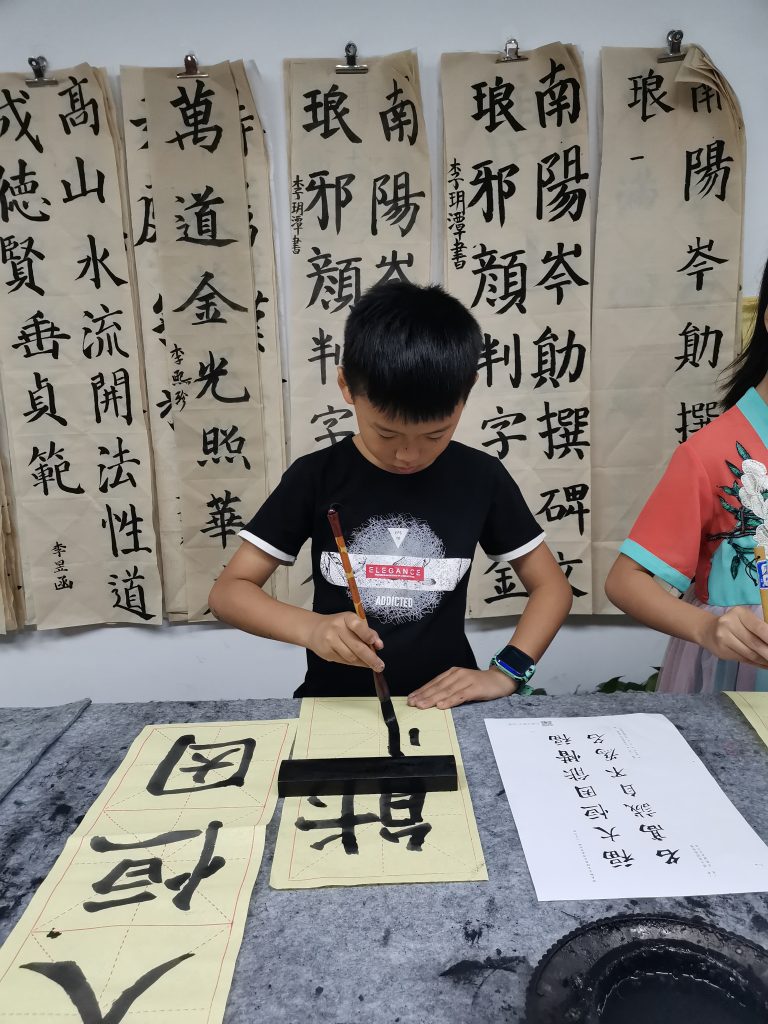 高山水流開法性道
成德賢垂貞範
李昱函
萬道金光照華
李熙珍
南陽岑
琅邪顔判字
李玥潭書
南陽岑勛撰碑文
琅邪顔判字
金
李玥潭書
南陽岑勛撰
琅
ELEGANCE
ADDICTED
恒
因
能
福大恒因能惜福
名高誠自不為名